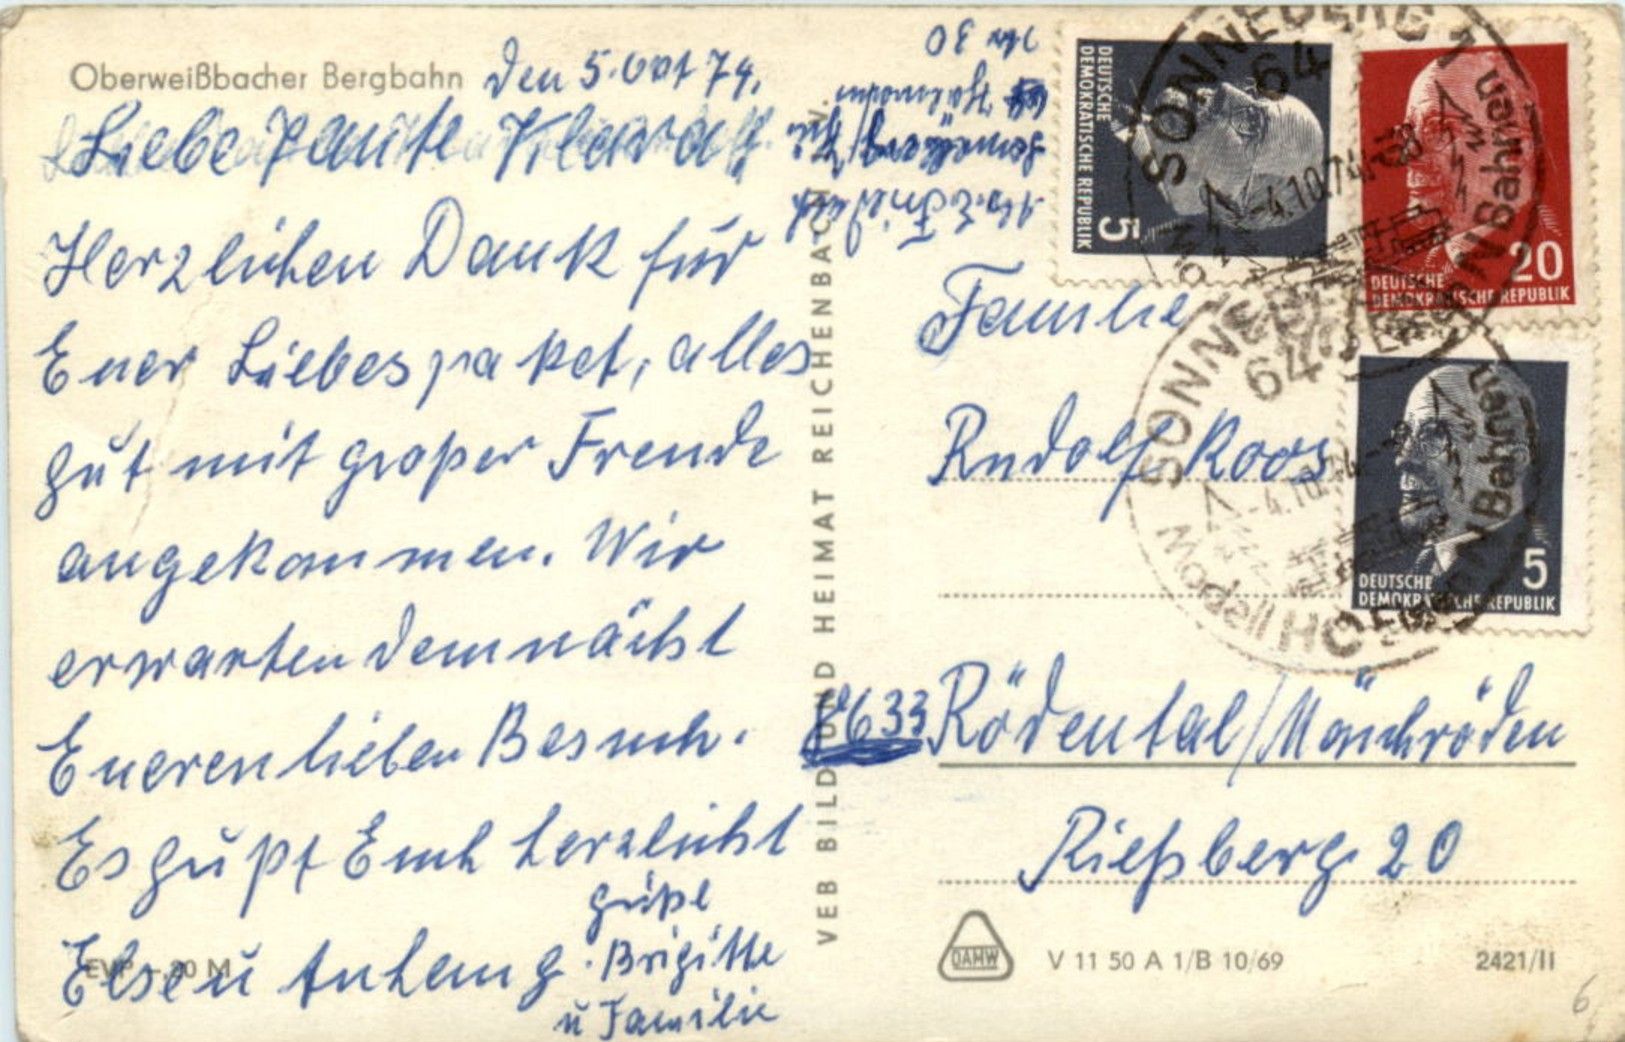 Oberweißbacher Bergbahn
den 5. Oct 74.
Liebe Tante Klara
Herzlichen Dank für
Euer Liebespaket, alles
gut mit großer Freude
angekommen. Wir
erwarten demnächst
Eueren lieben Besuch.
Es grüßt Euch herzlichst
Else u Anhang
Grüße
Brigitte
u Familie
EVP -,20 M
VEB BILD UND HEIMAT REICHENBACH i. V.
Nr 30
Sonneberg/Thü.
DEUTSCHE
DEMOKRATISCHE REPUBLIK
5
DEUTSCHE
DEMOKRATISCHE REPUBLIK
20
DEUTSCHE
DEMOKRATISCHE REPUBLIK
5
SONNEBERG 1
64
-4.10.74
Bahnen
SONNEBERG
64
-4.10.74
Bahnen
Familie
Rudolf Koos
8633 Rödental/Mönchröden
Rießberg 20
DAMW
V 11 50 A 1/B 10/69
2421/II
6